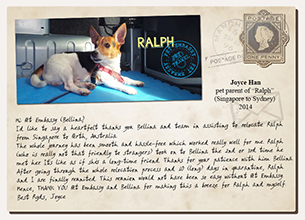 RALPH
PET EMBASSY
POSTAGE
ONE PENNY
Joyce Han
pet parent of "Ralph"
(Singapore to Sydney)
2014
Hi Pet Embassy (Bellina)
I'd like to say a heartfelt thanks you Bellina and team in assisting to relocate Ralph
from Singapore to Perth, Australia.
The whole journey has been smooth and hassle-free which worked really well for me. Ralph
(who is really not that friendly to strangers) took on to Bellina the 2nd or 3rd time he
met her its like as if she's a long-time friend. Thanks for your patience with him Bellina
After going through the whole relocation process and 10 (long) days in quarantine, Ralph
and I are finally reunited. This reunion would not have been so easy without Pet Embassy
Hence, THANK YOU Pet Embassy and Bellina for making this a breeze for Ralph and myself.
Best Rgds, Joyce